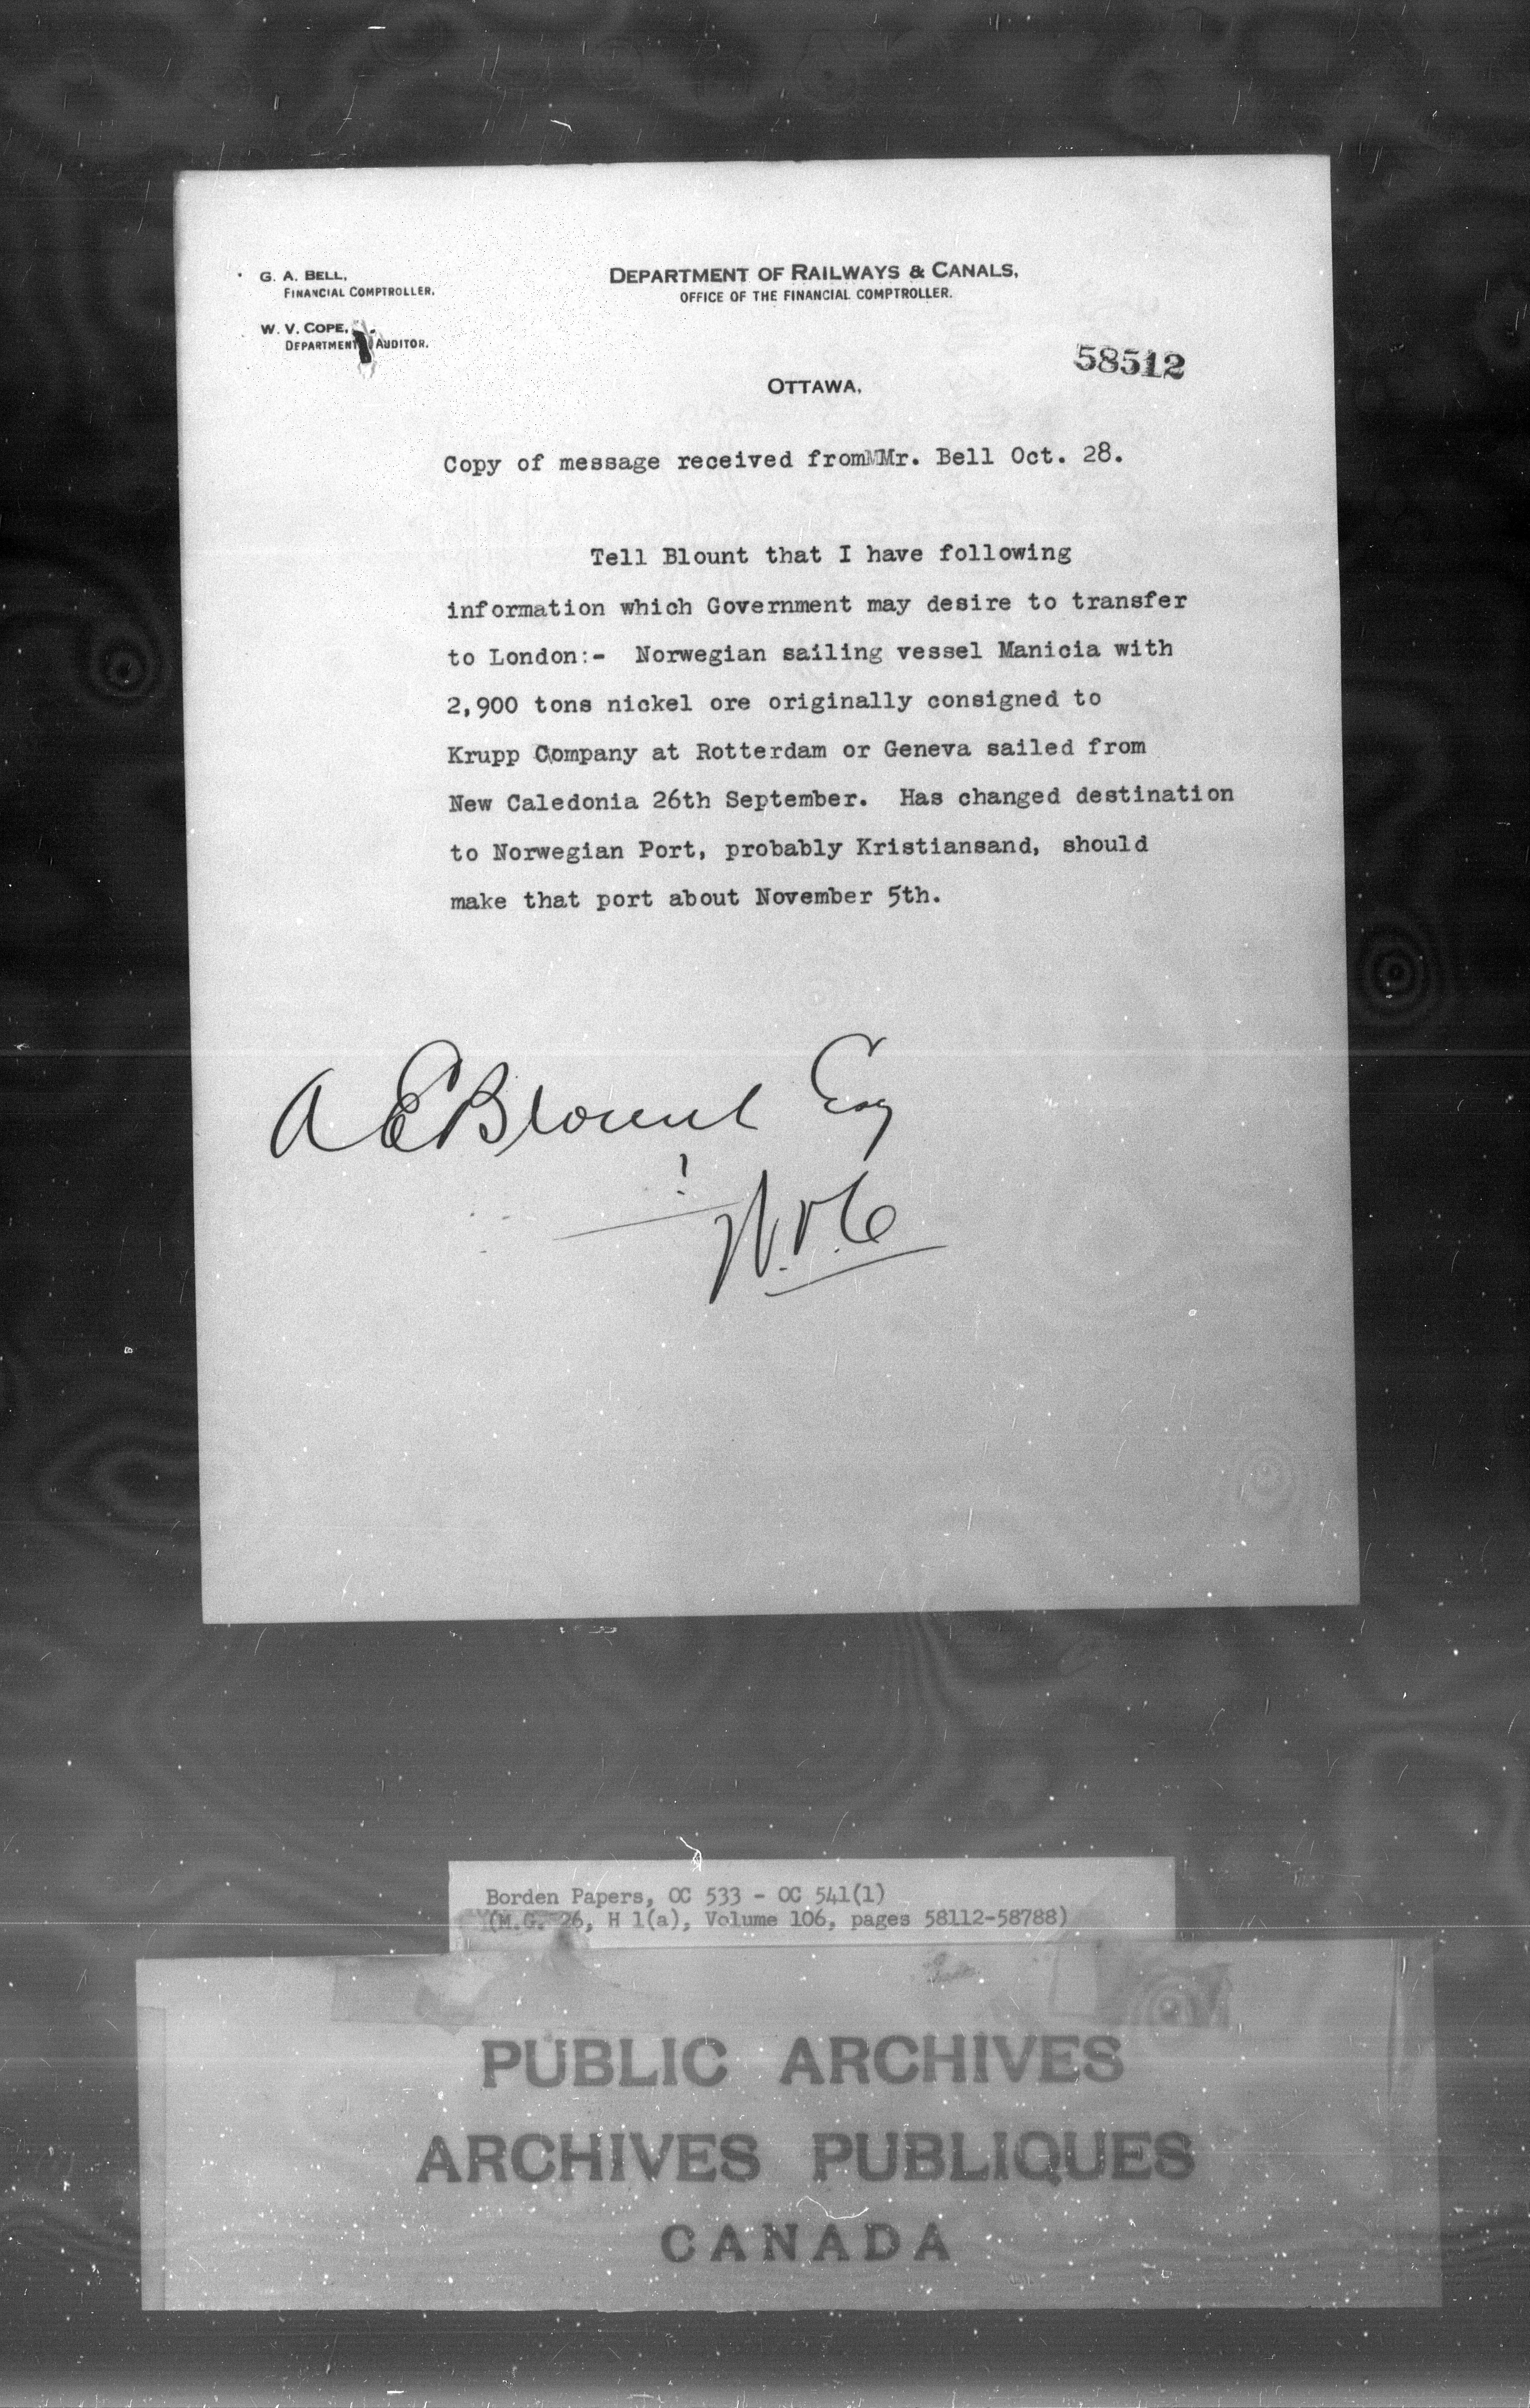 G. A. BELL,
FINANCIAL COMPTROLLER.
W. V. COPE,
DEPARTMENT AUDITOR.
DEPARTMENT OF RAILWAYS & CANALS,
OFFICE OF THE FINANCIAL COMPTROLLER.
58512
OTTAWA,
Copy of message received from Mr. Bell Oct. 28.
Tell Blount that I have following
information which Government may desire to transfer
to London:- Norwegian sailing vessel Manicia with
2,900 tons nickel ore originally consigned to
Krupp Company at Rotterdam or Geneva sailed from
New Caledonia 26th September. Has changed destination
to Norwegian Port, probably Kristiansand, should
make that port about November 5th.
A E Blount Esq
W.V.C
Borden Papers, OC 533 - OC 541(1)
(M.G. 26, H 1(a), Volume 106, pages 58112-58788)
PUBLIC ARCHIVES
ARCHIVES PUBLIQUES
CANADA